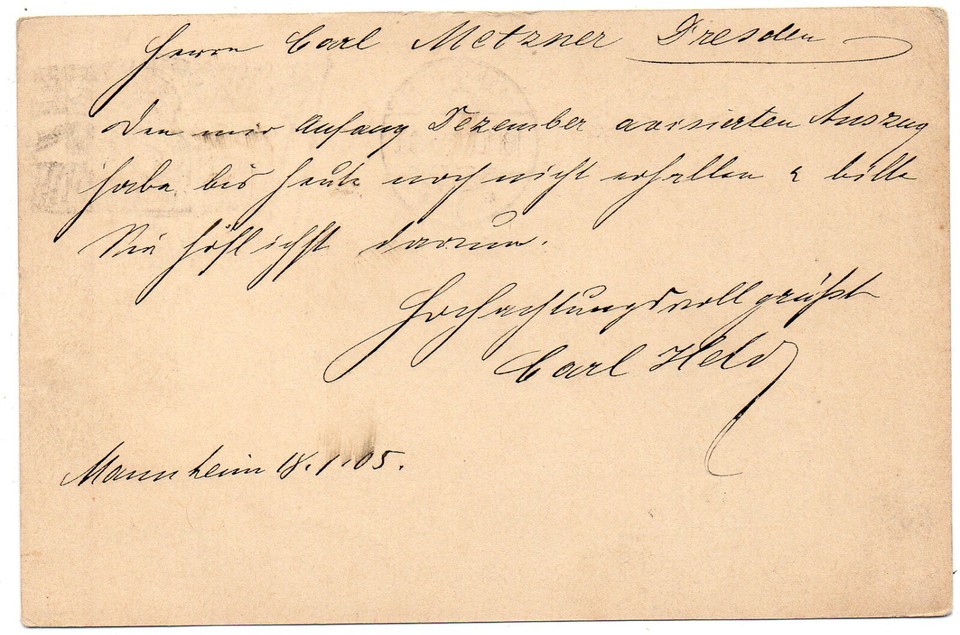 Herrn Carl Metzner Dresden
Den mir Anfang Dezember avisierten Auszug
habe bis heute noch nicht erhalten & bitte
Sie höflichst darum.
Hochachtungsvoll grüßt
Carl Held
Mannheim 18.1.05.